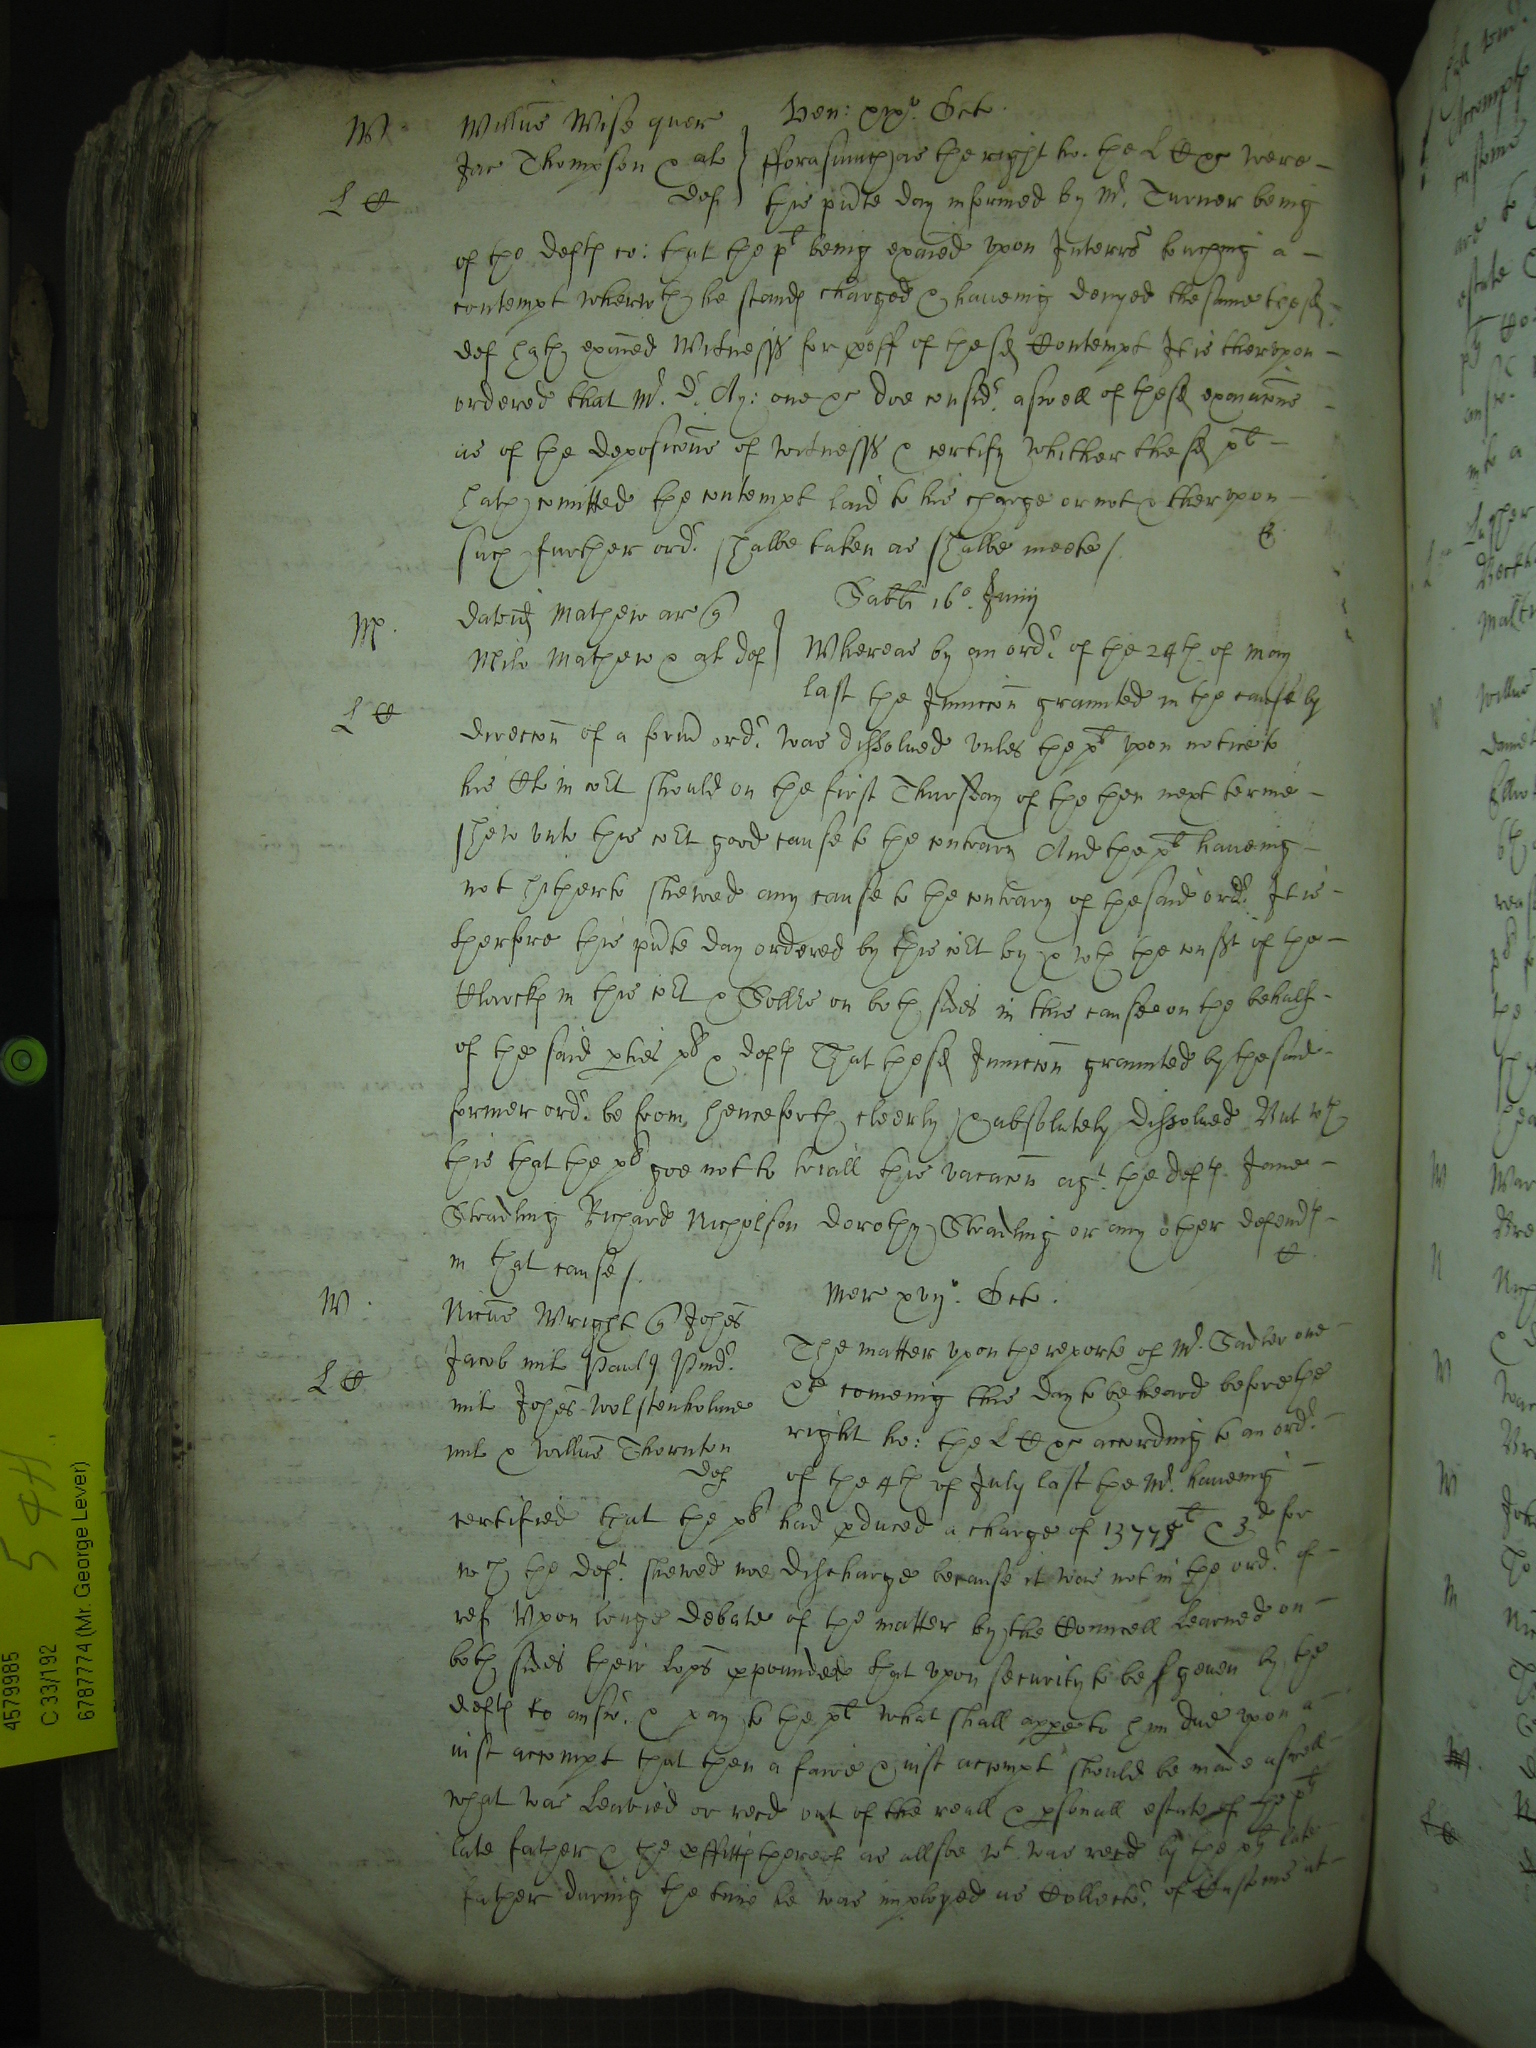 W Willus Wise quer Ven: xix° Octo.
Jac Thompson & al
def } fforasmuch as the right ho. the L C &c were
L C this pnte day informed by Mr. Turner being
of the defts co: that the plt being exaied upon Interrs touching a
contempt wherwth he stands charged & haueing denyed the same the sd
def hath exaied Witnesss for proff of the sd Contempt It is therupon
ordered that Mr. Dr. Ay: one &c doe consider aswell of the sd exaiacons
as of the deposicons of witnesss & certify whither the sd plt
hath comitted the contempt laid to his charge or not & therupon
such further ordr. shalbe taken as shalbe meete /.
Sabti 16°. Junij
M. David Mathew ar q
Milo Mathew & al def } Whereas by an ordr. of the 24th of may
last the Iniuccon graunted in the cause by
L C
direccon of a formr ordr. was dissolued vnles the plt vpon notice to
his Clk in cort should on the first Thursday of the then next terme
shew vnto this cort good cause to the contrary And the plt haueing
not hitherto shewed any cause to the contrary of the said ordr. It is
therfore this pnte day ordered by this cort by & wth the consent of the
Clercks in this cort & Sollrs on both sides in this cause on the behalf
of the said pties plts & defts That the sd Iniuccon graunted by the said
former ordr. be from henceforth cleerly & absolutely dissolued But wth
this that the plts goe not to triall this vacacon agt. the defts Jane
Stradling Richard Nicholson Dorothy Stradling or any other defendts
in that cause /.
W. Mer xvij°. Octo.
Nicus Wright q Johes
Jacob mil Paulus Pind.
mil Johes Wolstenholme
mil & Willus Thornton
def
L C
The matter vpon the reporte of Mr. Sadler one
&c comeing this day to be heard before the
right ho: the L C &c according to an ordr.
of the 4th of July last the Mr. haueing
certified that the plts had pduced a charge of 13775l & 3d for
wch the deft. shewed noe discharge because it was not in the ordr. of
ref Vpon longe debate of the matter by the Councell Learned on
both sides their Lopps ppounded that vpon security to be geuen by the
defts to answ. & pay to the plt what shall appe to him due vpon a
iust accompt that then a faire & iust accompt should be made aswell
what was Leauied or recd out of the reall & psonall estate of the plts
late father & the pffitts thereof as allsoe wt was recd by the plts late
father during the time he was imployed as Collector. of Customs at
4579985
C 33/192
6787774 (Mr. George Lever)